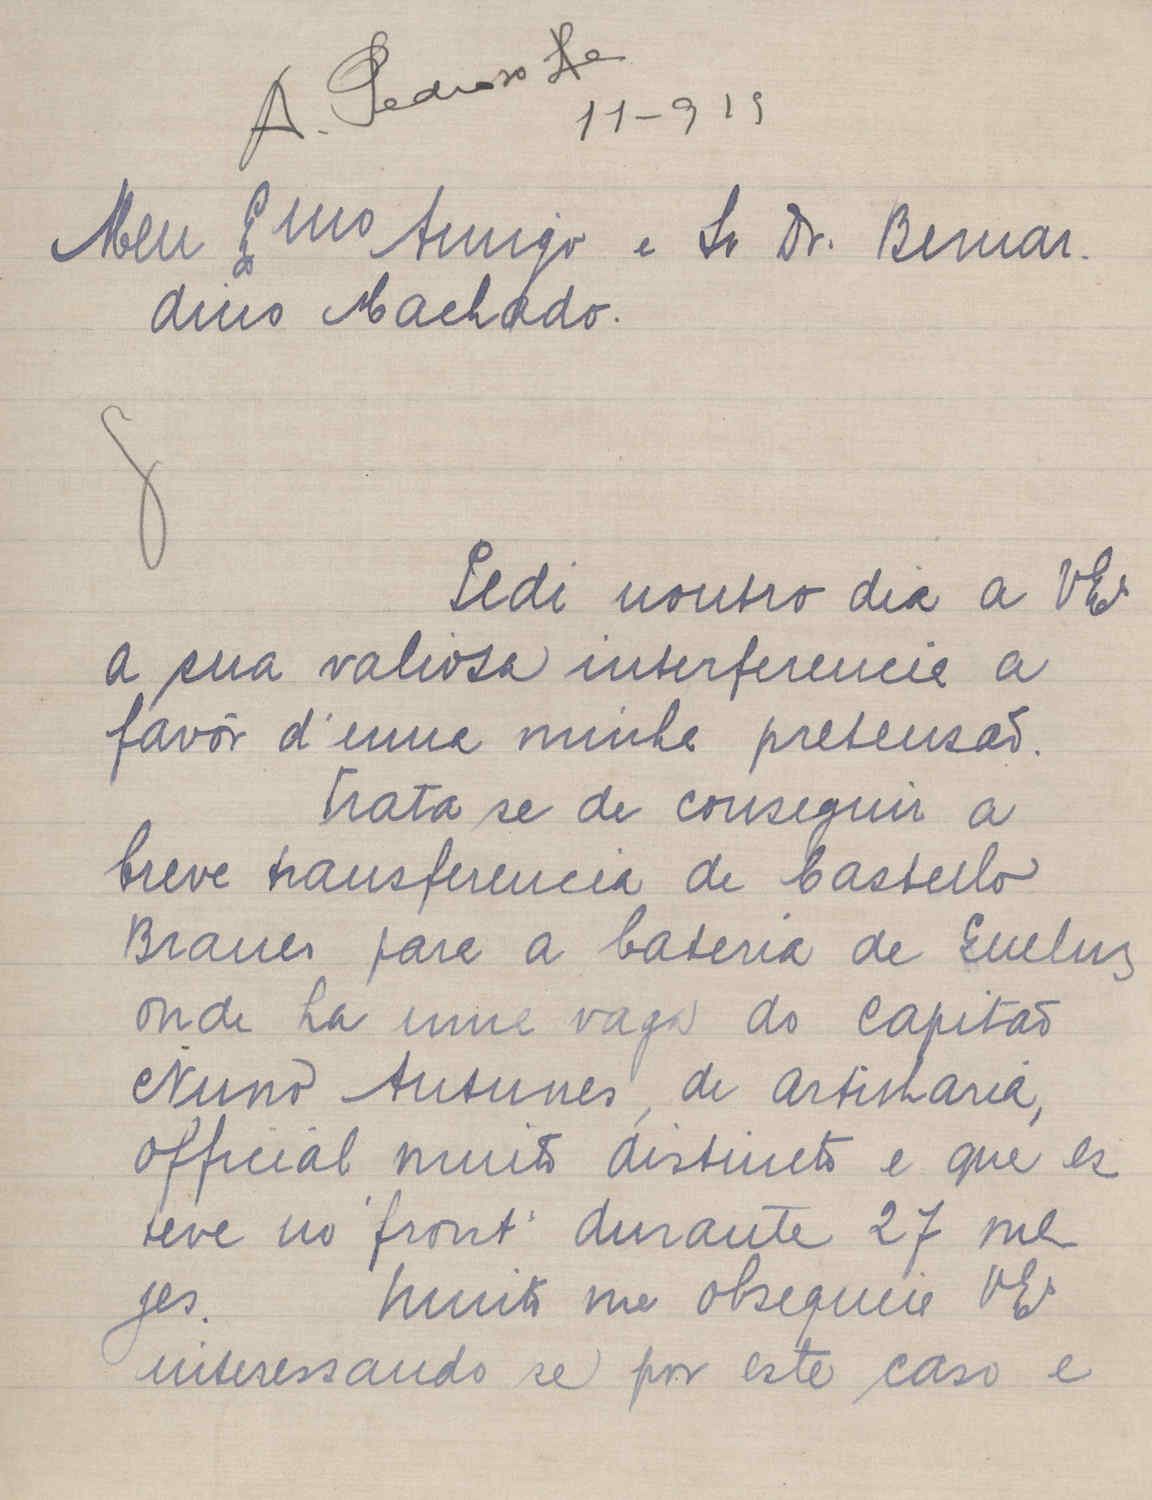 A. Pedroso
11-9 19
Meu Exmo Amigo e Sr Dr. Bernar-
dino Machado.
Pedi noutro dia a VExa
a sua valiosa interferencia a
favôr d'uma minha pretensão.
Trata se de conseguir a
breve transferencia de Castello
Branco para a bateria de Queluz
onde ha uma vaga do capitão
Nuno Antunes, de artilharia,
official muito distincto e que es
teve no "front" durante 27 me
zes. Muito me obsequeia VExa
interessando se por este caso e